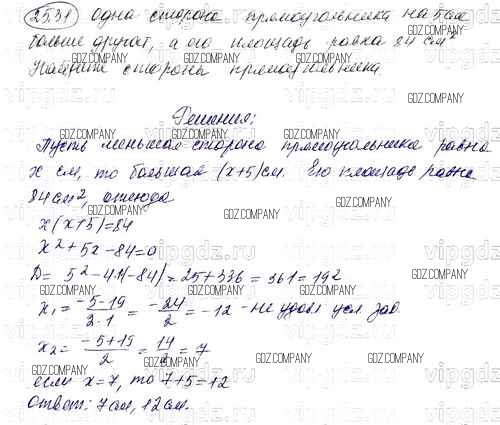 25.31 Одна сторона прямоугольника на 5 см
больше другой, а его площадь равна 84 см²
Найдите стороны прямоугольника.
Решения:
Пусть меньшая сторона прямоугольника равна
x см, то большая (x+5) см. Его площадь равна
84 см², отсюда
x(x+5)=84
x²+5x-84=0
D= 5²-4·1(-84)=25+336=361=19²
x₁= (-5-19)/(2·1) = -24/2 = -12 - не удовл усл. зад.
x₂= (-5+19)/2 = 14/2 = 7
если x=7, то 7+5=12
Ответ: 7 см, 12 см.
GDZ.COMPANY
vipgdz.ru